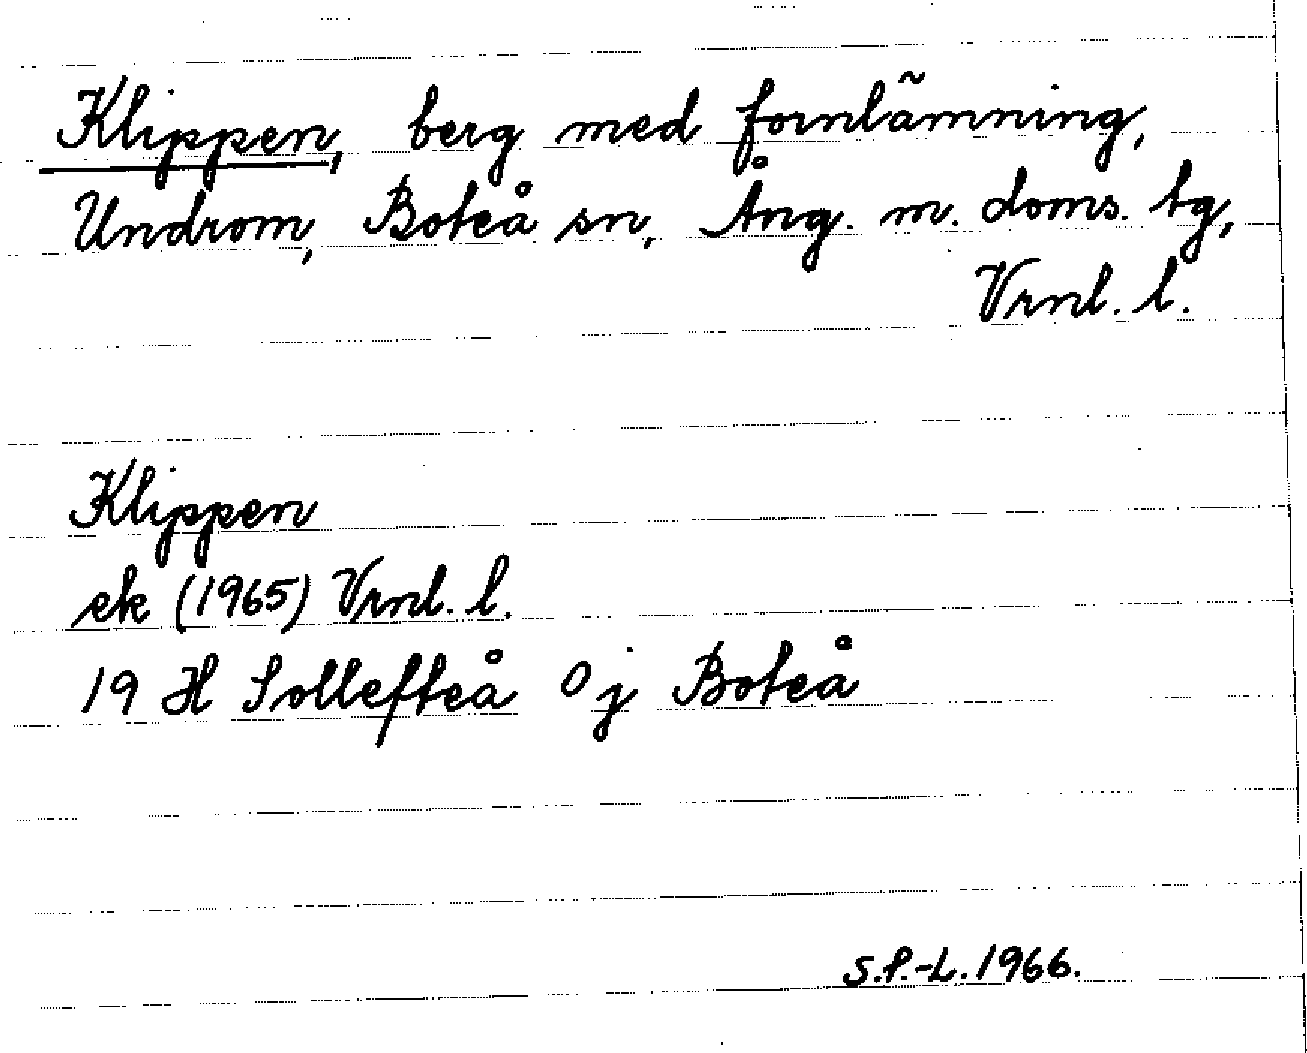 Klippen, berg med fornlämning,
Undrom, Boteå sn, Ång. m. doms. tg,
Vrnl. l.
Klippen
ek (1965) Vrnl. l.
19 H Sollefteå 0 j Boteå
S.P.-L. 1966.